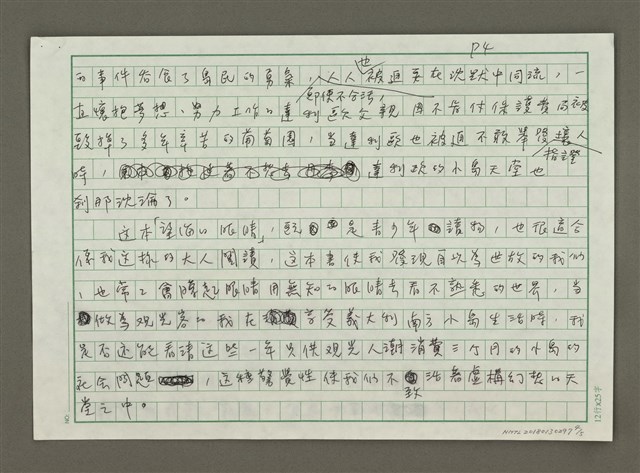 P4
的事件吞食了島民的勇氣，人人也被迫要在沈默中同流，一
即使不合法，
直懷抱夢想、努力工作的達利歐父親因不肯付保護費而被
毀掉了多年辛苦的葡萄園，當達利歐也被迫不敢舉發讓人
指證
時，達利歐的小島天堂也
剎那沈淪了。
這本「 眼睛」，既是青少年讀物，也很適合
像我這樣的大人閱讀，這本書使我發現自以為世故的我們
，也常常會矇起眼睛用無知的眼睛去看不熟悉的世界，當
做為觀光客的我在享受義大利南方小島生活時，我
是否還能看清這些一年只供觀光人潮消費三个月的小島的
社會問題，這種驚覺性使我們不致活著虛構幻想的天
堂之中。
NO.
12行×25字